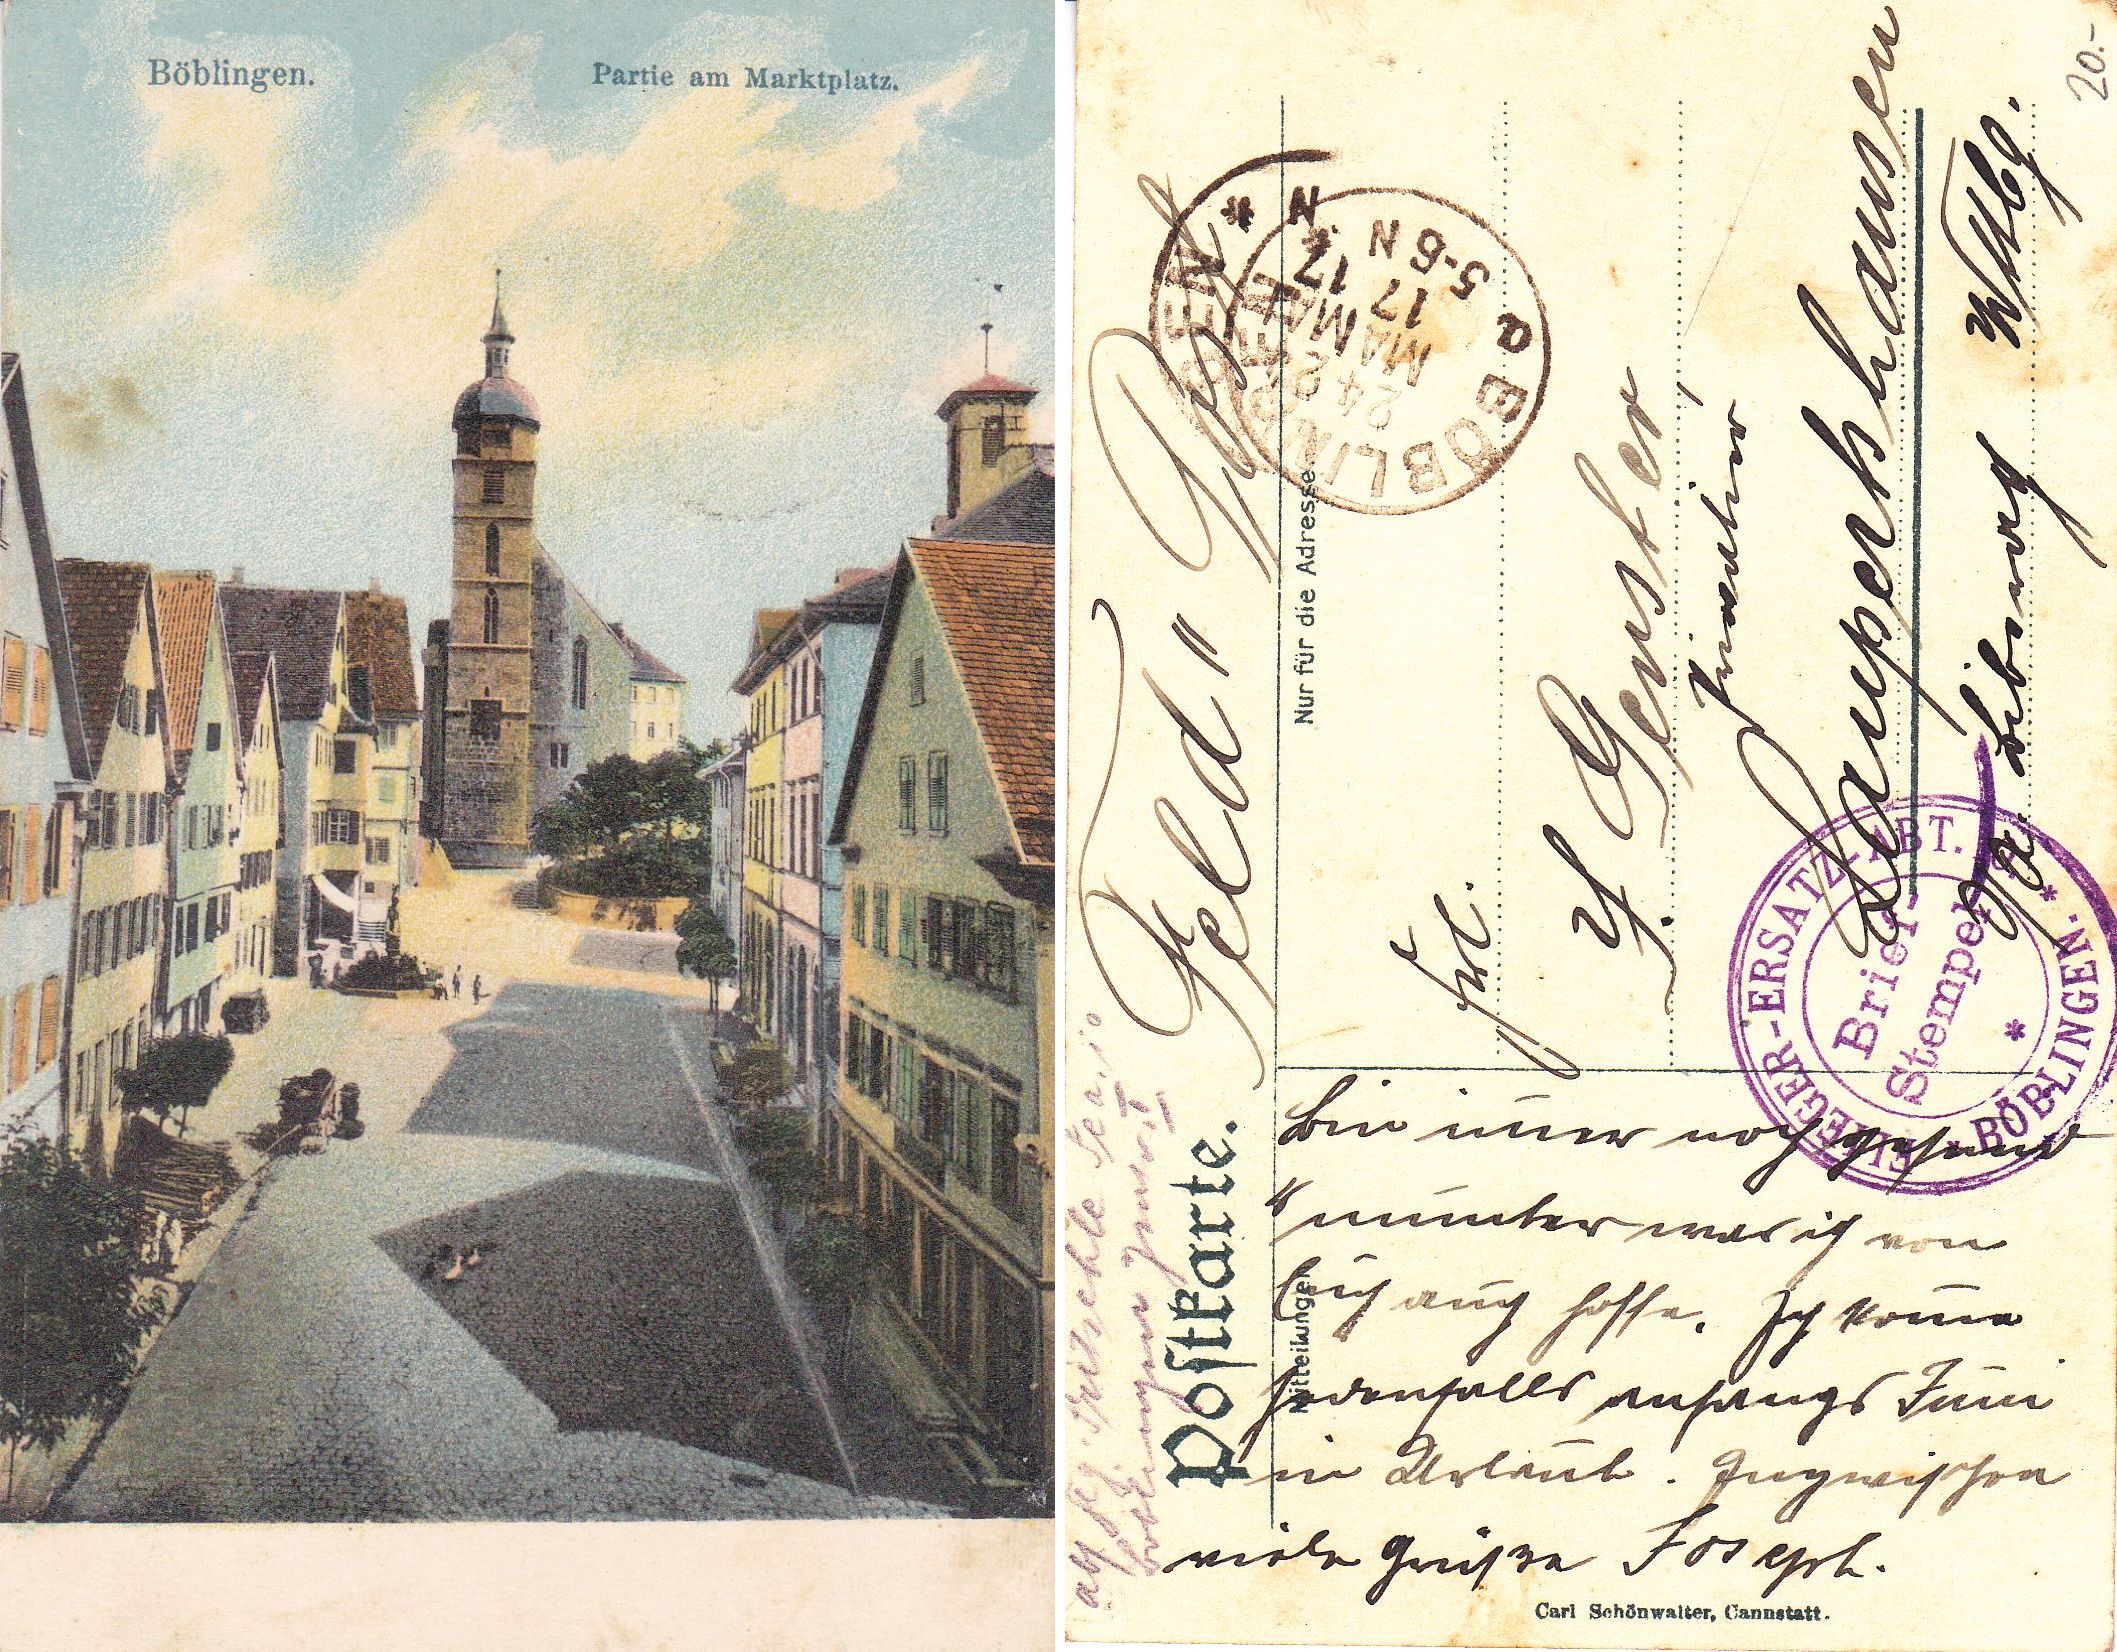 Böblingen.
Partie am Marktplatz.
20.-
Feld " Post
Postkarte.
Nur für die Adresse.
BÖBLINGEN
24 MAE 17
5-6 N
Frl.
Gerster
Laupertshausen
O/A. Biberach Wttbg.
FLIEGER-ERSATZ-ABT.
BÖBLINGEN.
Brief-
Stempel
Mitteilungen
Bin immer noch gesund
u munter was ich von
Euch auch hoffe. Ich komme
jedenfalls anfangs Juni
in Urlaub. Inzwischen
viele Grüsse Joseph.
Carl Schönwalter, Cannstatt.